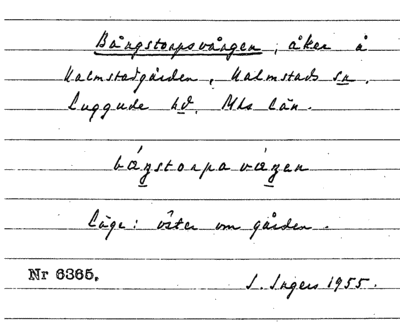 Bångstorpsvången, åker å
Halmstadgården, Halmstads sn.
Luggude hd. Mhs län.
Läge: öster om gården.
Nr 6365.
I. Ingers 1955.